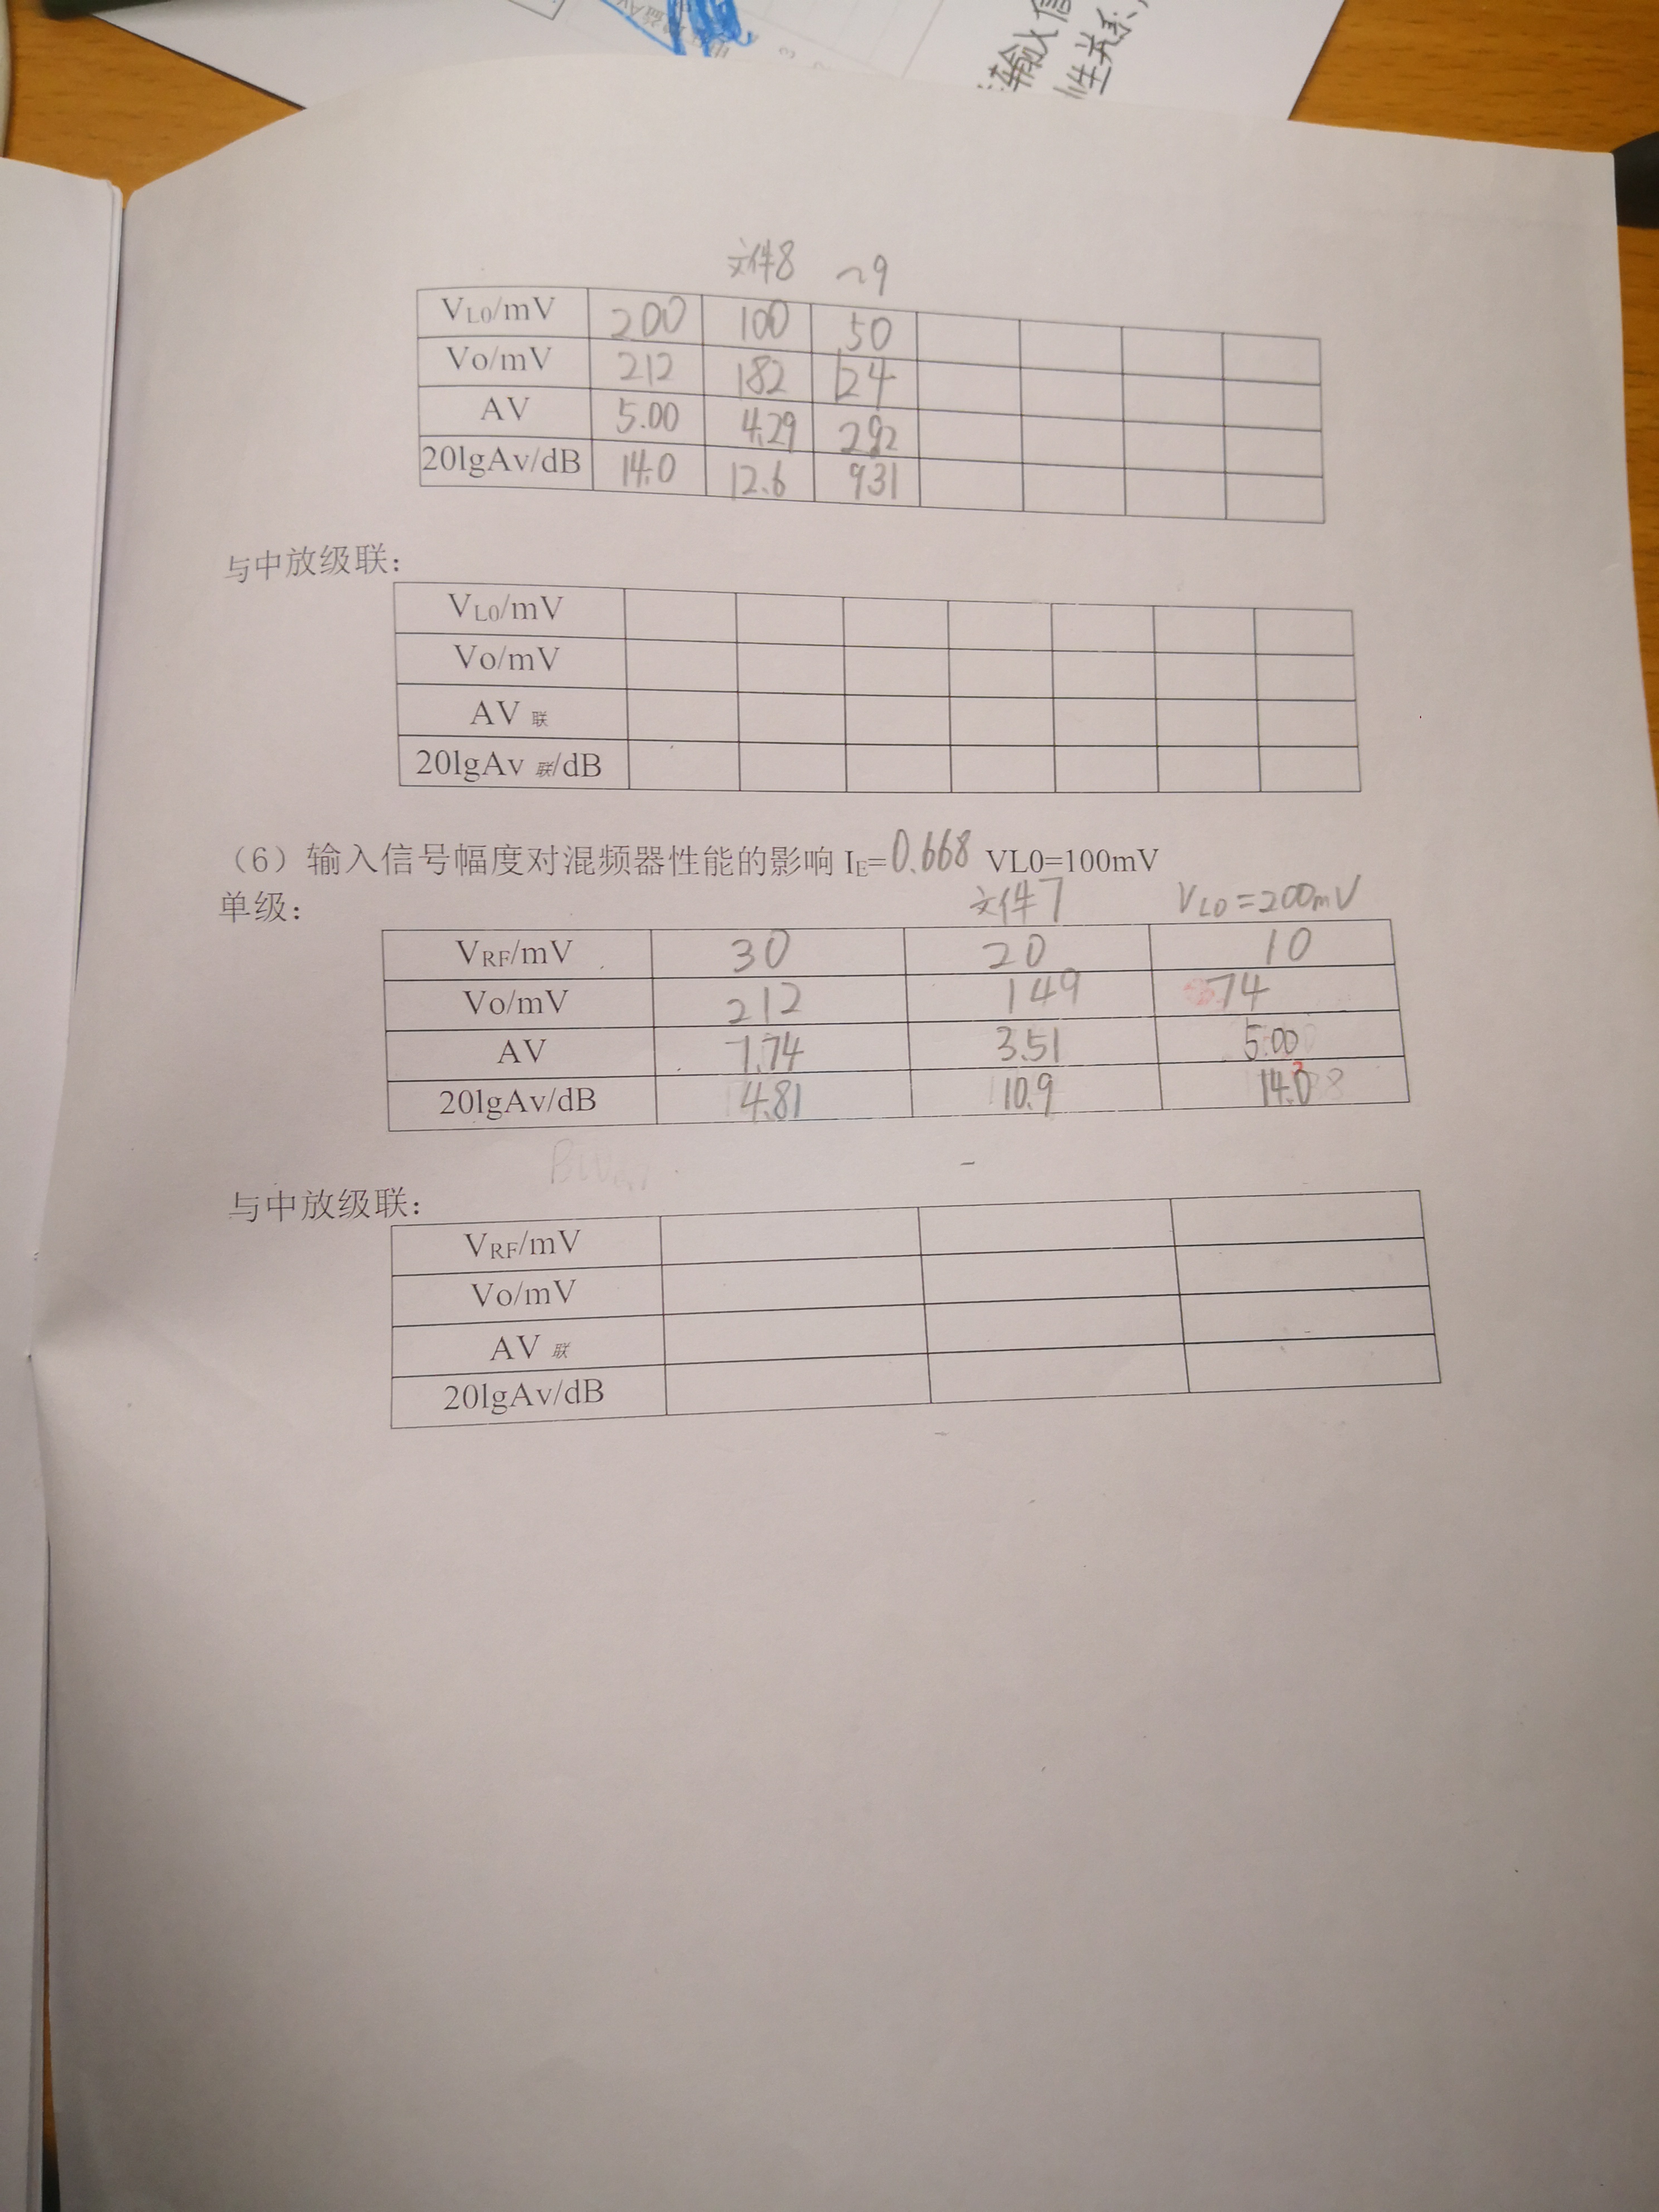 输入信
性关系,
文件8 ~9
VL0/mV 200 100 50
Vo/mV 212 182 124
AV 5.00 4.29 2.92
20lgAv/dB 14.0 12.6 9.31
与中放级联:
VL0/mV
Vo/mV
AV 联
20lgAv 联/dB
(6)输入信号幅度对混频器性能的影响 IE=0.668 VL0=100mV
单级: 文件7 VLO=200mV
VRF/mV 30 20 10
Vo/mV 212 149 74
AV 1.74 3.51 5.00
20lgAv/dB 4.81 10.9 14.0
与中放级联:
VRF/mV
Vo/mV
AV 联
20lgAv/dB